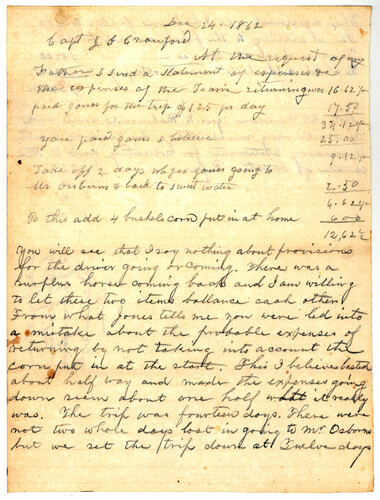 Dec 24. 1862
Capt J. S. Crawford
At the request of my
Father I send a statement of expenses &c
The expenses of the Team returning was 16.62½
paid Jones for the trip @ 1.25 pr day 17.50
34.12½
You paid Jones I believe 25.00
9.12½
Take off 2 days wages Jones going to
Mr Osburns & back to Sweet water 2.50
6.62½
To this add 4 bushels corn put in at home 6.00
12,62½
You will see that I say nothing about provisions
for the driver going or coming. There was a
surplus horse coming back and I am willing
to let these two items ballance each other
From what Jones tells me you were led into
a mistake about the probable expenses of
returning by not taking into account the
corn put in at the start. This I believe lasted
about half way and made the expenses going
down seem about one half what it really
was. The trip was fourteen days. There were
not two whole days lost in going to Mr. Osborns
but we set the trip down at Twelve days